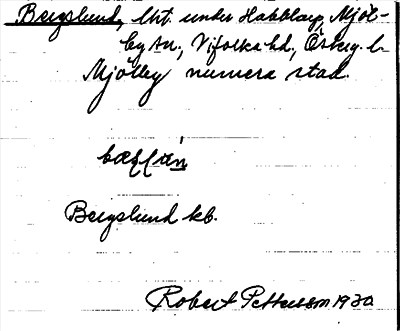 Bergslund, lht. under Habblarp, Mjöl-
by sn., Vifolka hd, Österg. l.
Mjölby numera stad.
Bergslund kb.
Robert Pettersson 1930